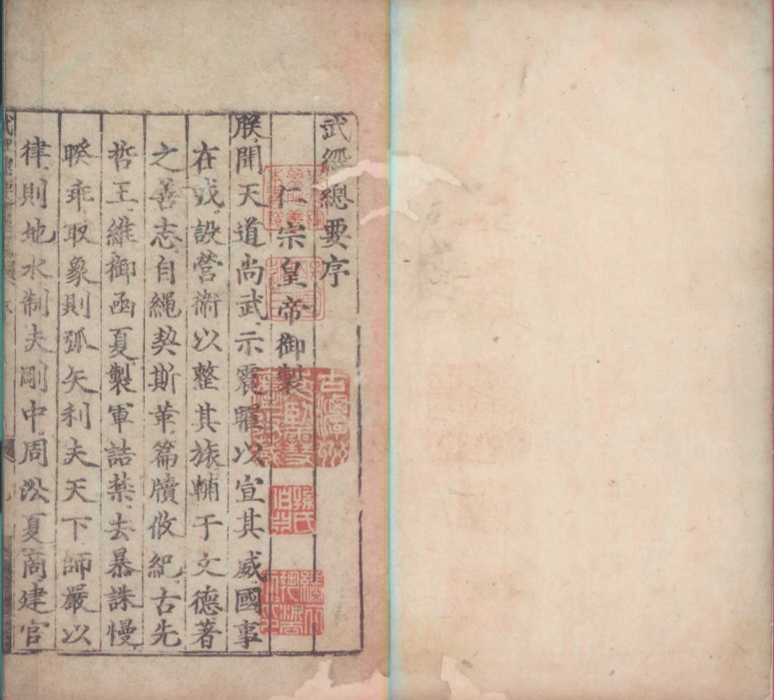 武經總要序
仁宗皇帝御製
朕聞天道尚武示震曜以宣其威國事
在戎設營衛以整其旅輔于文德著
之善志自繩契斯革篇牘攸紀古先
哲王維御函夏製軍詰禁去暴誅慢
睽乖取象則弧矢利夫天下師嚴以
律則地水制夫剛中周㳂夏商建官